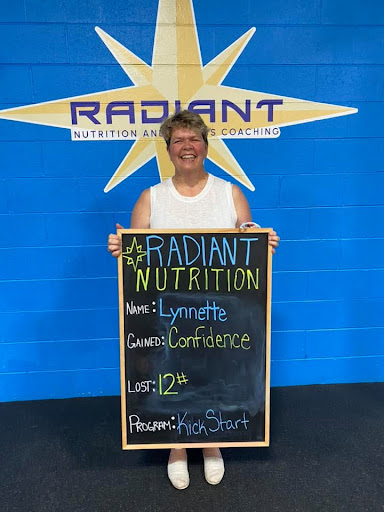 RADIANT
NUTRITION AND
S COACHING
RADIANT
NUTRITION
NAME: Lynnette
GAINED: Confidence
LOST: 12#
PROGRAM: KickStart